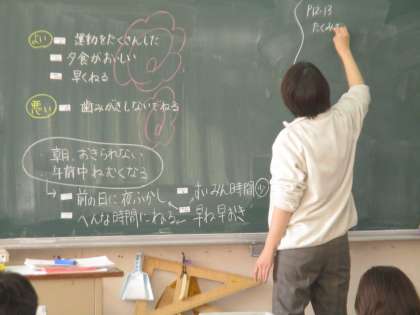 よい 運動をたくさんした
夕食がおいしい
早くねる
悪い 歯みがきしないでねる
・朝、おきられない
・午前中ねむくなる
前の日に夜ふかし
へんな時間にねる
すいみん時間 少
早ね早おき
P12・13
たくみさ